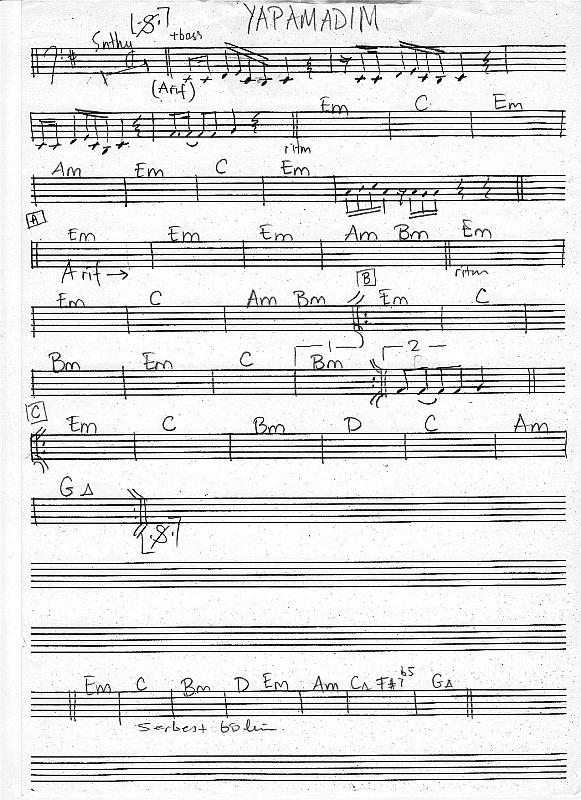 YAPAMADIM
Snthy +bass
(Arif)
Em C Em
ritm
Am Em C Em
A
Em Em Em Am Bm Em
Arif → ritm
B
Em C Am Bm Em C
1 2
Bm Em C Bm
C
Em C Bm D C Am
G△
Em C Bm D Em Am C△ F#7b5 G△
Serbest bölüm